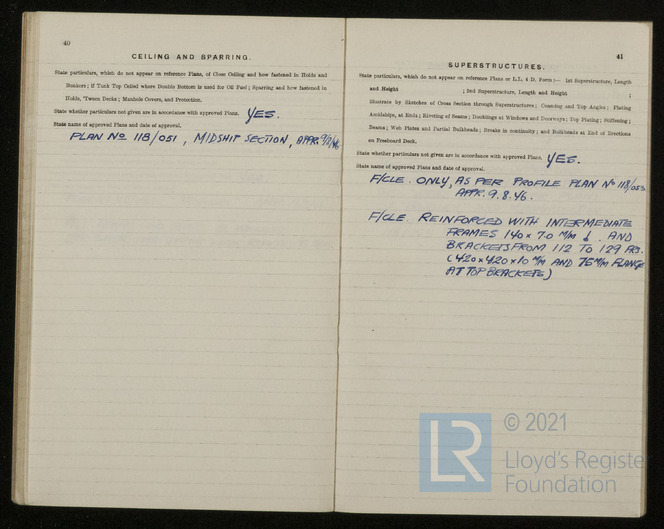 40
CEILING AND SPARRING.
State particulars, which do not appear on reference Plans, of Close Ceiling and how fastened in Holds and
Bunkers; if Tank Top Ceiled where Double Bottom is used for Oil Fuel; Sparring and how fastened in
Holds, 'Tween Decks; Manhole Covers, and Protection.
State whether particulars not given are in accordance with approved Plans. YES.
State name of approved Plans and date of approval.
PLAN No 118/051, MIDSHIP SECTION, APPR.
41
SUPERSTRUCTURES.
State particulars, which do not appear on reference Plans or L.L. 4 D. Form:— 1st Superstructure, Length
and Height ; 2nd Superstructure, Length and Height ;
illustrate by Sketches of Cross Section through Superstructures; Coaming and Top Angles; Plating
Amidships, at Ends; Riveting of Beams; Doublings at Windows and Doorways; Top Plating; Stiffening;
Beams; Web Plates and Partial Bulkheads; Breaks in continuity; and Bulkheads at End of Erections
on Freeboard Deck.
State whether particulars not given are in accordance with approved Plans. YES.
State name of approved Plans and date of approval.
F/CLE. ONLY, AS PER PROFILE PLAN No 118/053
APPR. 9.8.46.
F/CLE. REINFORCED WITH INTERMEDIATE
FRAMES 140 x 7.0 M/M AND
BRACKETS FROM 112 TO 129 FRS.
(420 x 420 x 10 M/M AND 75 M/M FLANGE
AT TOP BRACKETS)
LR
© 2021
Lloyd's Register
Foundation